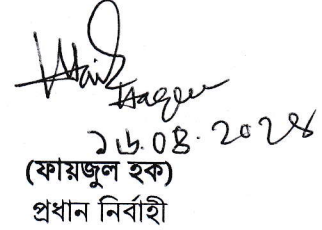 ১৬.০৪.২০২৪
(ফায়জুল হক)
প্রধান নির্বাহী